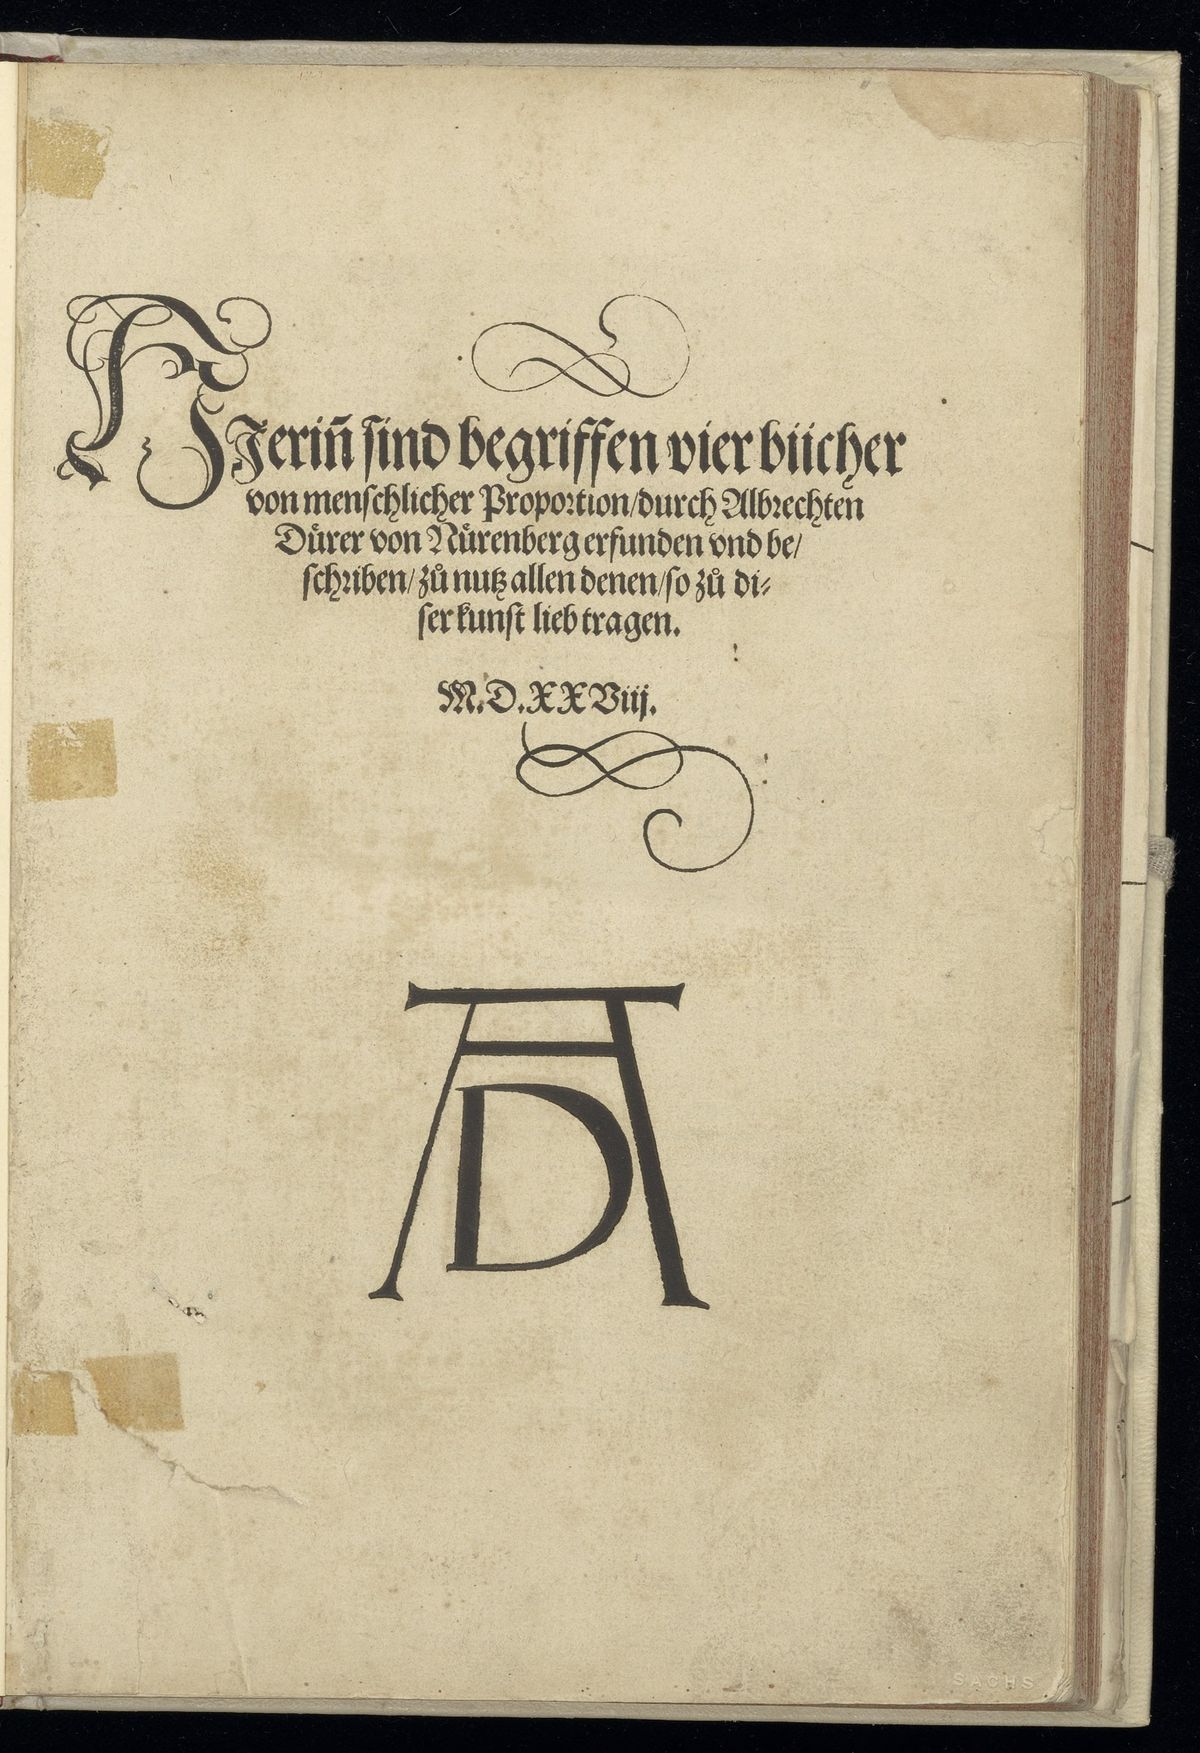 HJerin̄ sind begriffen vier bücher
von menschlicher Proportion/durch Albrechten
Du̓rer von Nu̓renberg erfunden vnd be/
schriben/zů nutz allen denen/so zů di-
ser kunst lieb tragen.
M.D.XXViij.
AD
SACHS